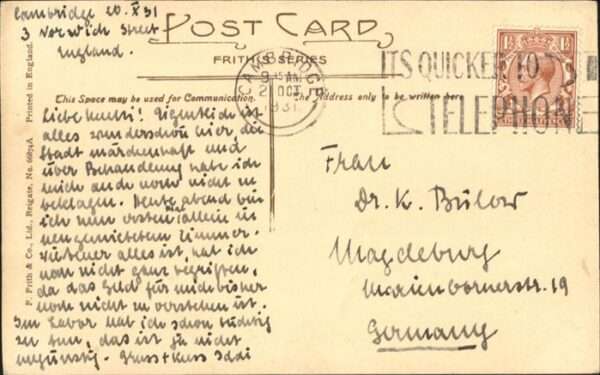 Cambridge 20. X 31
3 Norwich Street
England.
POST CARD
FRITH'S SERIES
Printed in England.
F. Frith & Co., Ltd., Reigate, No. 66874A
This Space may be used for Communication.
The Address only to be written here
CAMBRIDGE
9 15 AM
21 OCT
1931
ITS QUICKER TO
TELEPHONE
1½ 1½
Liebe Mutti! Eigentlich ist
alles wunderschön hier, die
Stadt märchenhaft und
über Behandlung habe ich
mich auch noch nicht zu
beklagen. Heute abend bin
ich zum ersten Mal allein in
neugemietetem Zimmer.
Wie teuer alles ist, hab ich
noch nicht ganz begriffen,
da das Geld für mich bisher
noch nicht zu verstehen ist.
Im Labor hab ich schon tüchtig
zu tun, das ist ja nicht
ungünstig. Gruss + Kuss
Frau
Dr. K. Bülow
Magdeburg
Marienbornerstr. 19
Germany